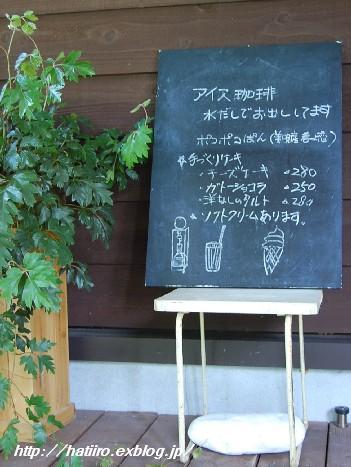 アイス珈琲
水だしでお出ししてます
ポコポコぱん
手づくりケーキ
・チーズケーキ 280
・ガトーショコラ 250
・洋なしのタルト 280
・ソフトクリームあります。
http://hatiiro.exblog.jp/